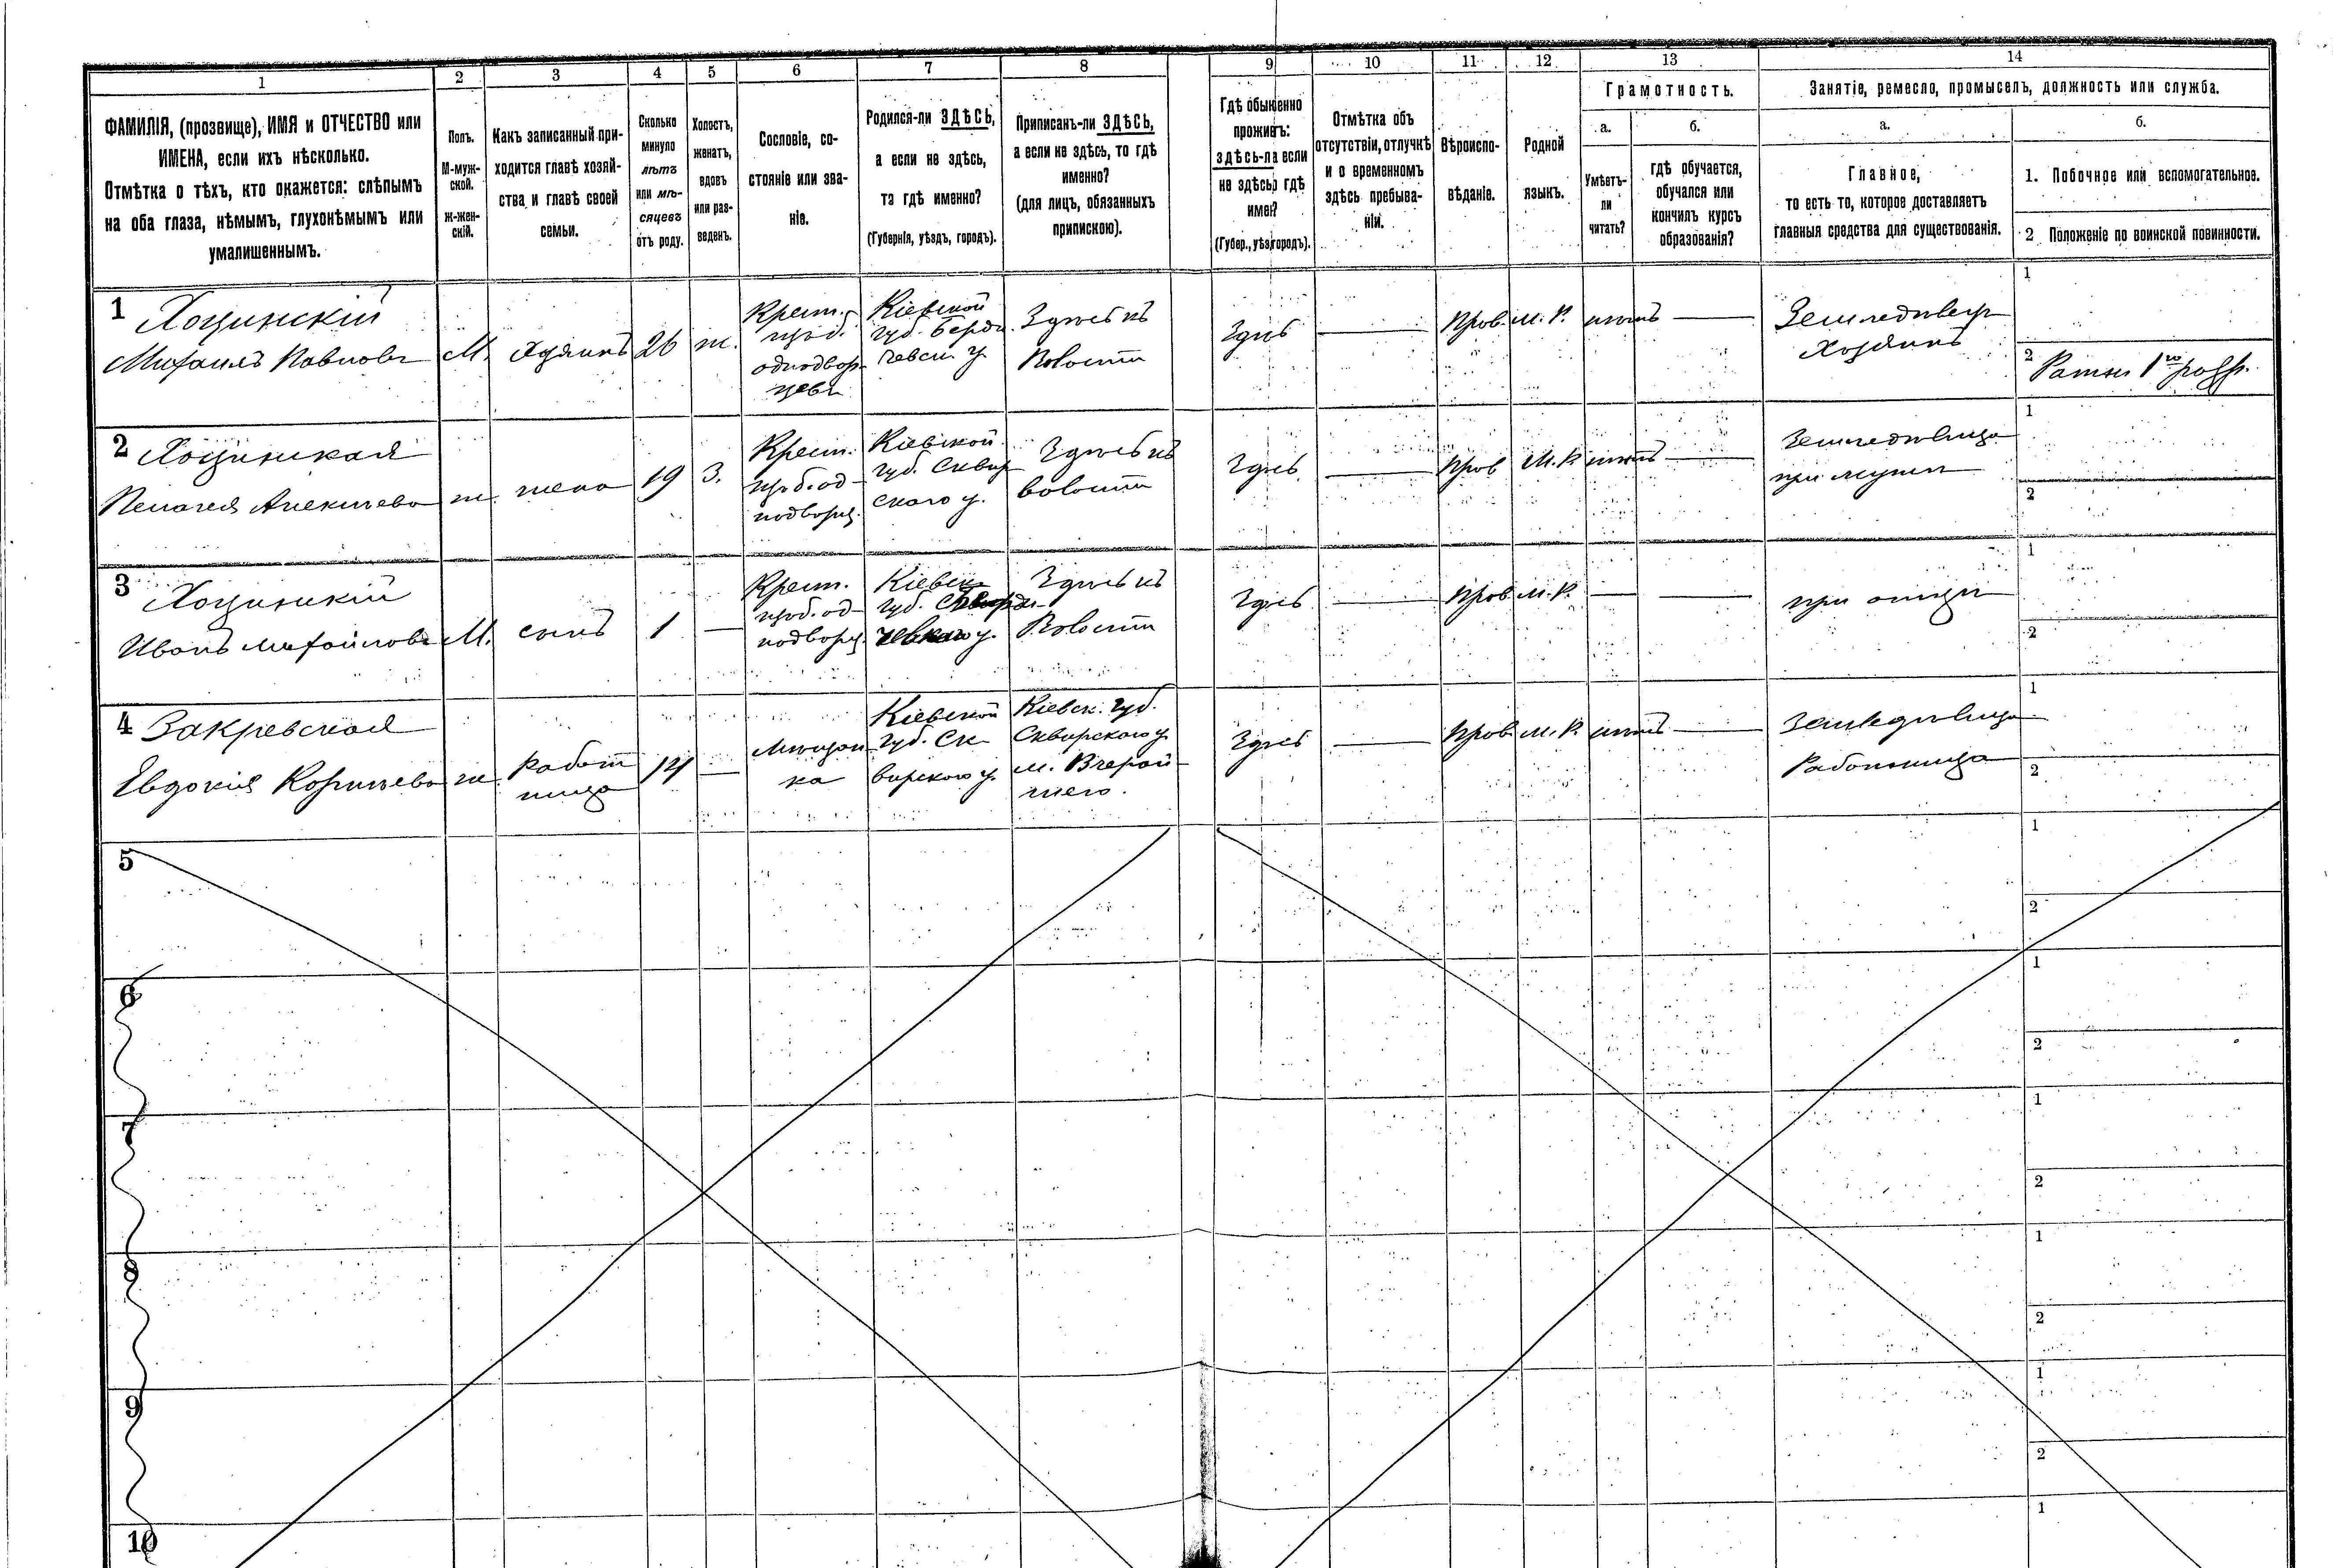 1 2 3 4 5 6 7 8 9 10 11 12 13 14
ФАМИЛІЯ, (прозвище), ИМЯ и ОТЧЕСТВО или
ИМЕНА, если ихъ нѣсколько.
Отмѣтка о тѣхъ, кто окажется: слѣпымъ
на оба глаза, нѣмымъ, глухонѣмымъ или
умалишеннымъ.
Полъ.
М-муж-
ской.
ж-жен-
скій.
Какъ записанный при-
ходится главѣ хозяй-
ства и главѣ своей
семьи.
Сколько
минуло
лѣтъ
или мѣ-
сяцевъ
отъ роду.
Холостъ,
женатъ,
вдовъ
или раз-
веденъ.
Сословіе, со-
стояніе или зва-
ніе.
Родился-ли ЗДѢСЬ,
а если не здѣсь,
та гдѣ именно?
(Губернія, уѣздъ, городъ).
Приписанъ-ли ЗДѢСЬ,
а если не здѣсь, то гдѣ
именно?
(для лицъ, обязанныхъ
припискою).
Гдѣ обыкненно
проживтъ:
здѣсь-ла если
не здѣсь гдѣ
имен?
(Губер., уѣз городъ).
Отмѣтка объ
отсутствіи, отлучкѣ
и о временномъ
здѣсь пребыва-
ніи.
Вѣроиспо-
вѣданіе.
Родной
языкъ.
Грамотность.
а.
Умѣетъ-
ли
читать?
б.
гдѣ обучается,
обучался или
кончилъ курсъ
образованія?
Занятіе, ремесло, промыселъ, должность или служба.
а.
Главное,
то есть то, которое доставляетъ
главныя средства для существованія.
б.
1. Побочное или вспомогательное.
2 Положеніе по воинской повинности.
1 Хоцинскій
Михаилъ Павловъ
М.
Хозяинъ
26
ж.
Крест.
одноdвор-
цевъ
Кіевской
губ. Берди
чевск. у.
Здѣсь къ
Волости
Здѣсь
Прав.
М. Р.
нѣтъ
Земледѣлецъ
Хозяинъ
1
2 Ратн. 1го разр.
2 Хоцинская
Пелагея Алексѣева
ж.
жена
19
З.
Крест.
подворц.
Кіевской
губ. Сквир
ского у.
Здѣсь къ
волости
Здѣсь
Прав
М. Р.
нѣтъ
Земледѣлица
при мужѣ
1
2
3 Хоцинскій
Иванъ Михайловъ
М.
сынъ
1
Крест.
подворц.
Кіевск.
губ.
Здѣсь къ
Волости
Здѣсь
Прав
М. Р.
при отцѣ
1
2
4 Закревская
Евдокія Корнѣева
ж.
Работ
ница
14
Мѣщан
ка
Кіевской
губ. Ск
вирского у.
Кіевск. Губ.
Сквирского у
м. Вчерай
шего.
Здѣсь
Прав
М. Р.
нѣтъ
Земледѣлица
Работница
1
2
5
1
2
6
1
2
7
1
2
8
1
2
9
1
2
10
1